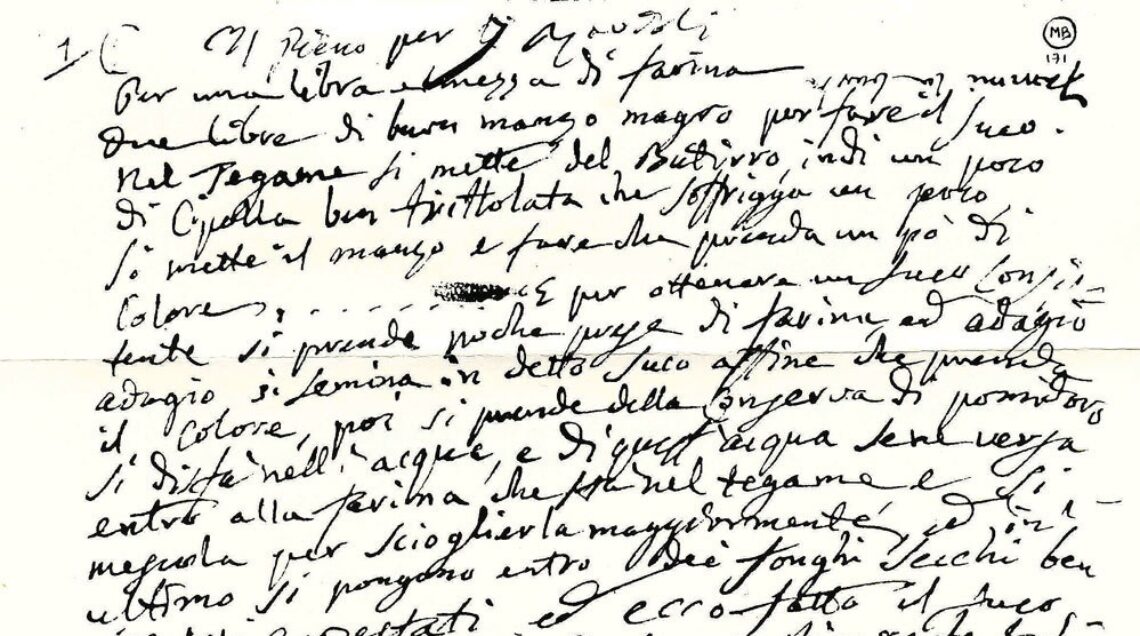 MB
171
1
Il Pieno per i Ravioli
Per una libra e mezza di farina
due libre di buon manzo magro per fare il suco.
Nel Tegame si mette del Butirro, indi un poco
di Cipolla ben trittolata che soffrigga un poco,
si mette il manzo e fare che prenda un pò di
Colore, E per ottenere un suco Consis-
tente si prende poche prese di farina ed adagio
adagio si semina in detto suco affine che prenda
il Colore, poi si prende della Conserva di pomidoro
si disfà nell'acqua, e di quest'acqua sene versa
entro alla farina che stà nel tegame e si
mescola per scioglierla maggiormente, ed in
ultimo si pongano entro dei fonghi secchi ben
pestati ed ecco fatto il suco